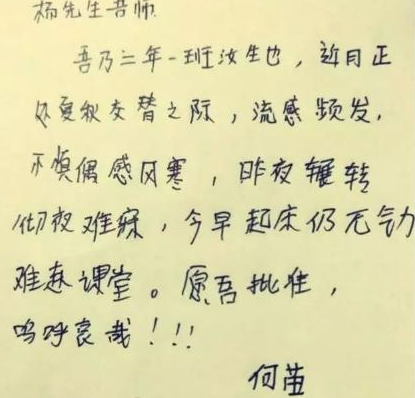 杨先生吾师
吾乃二年一班汝生也，近日正
处夏秋交替之际，流感频发，
不慎偶感风寒，昨夜辗转
彻夜难寐，今早起床仍无气力
难赴课堂。愿吾批准，
呜呼哀哉！!!
何苗